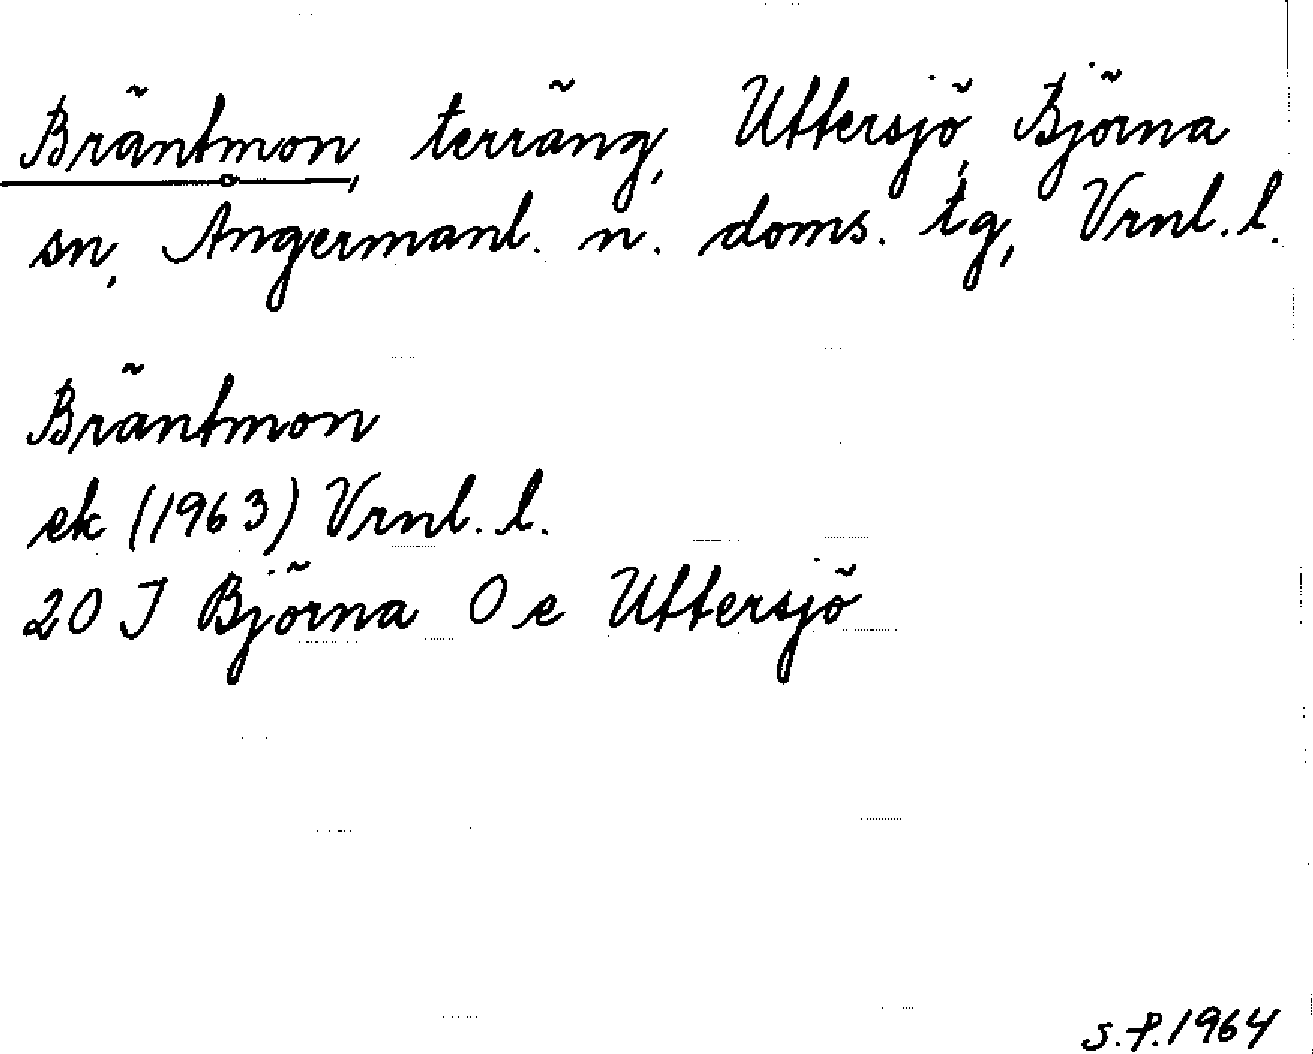 Bräntmon, terräng, Uttersjö, Björna
sn, Ångermanl. n. doms. tg, Vrnl. l.
Bräntmon
ek (1963) Vrnl. l.
20 J Björna 0 e Uttersjö
S.P. 1964